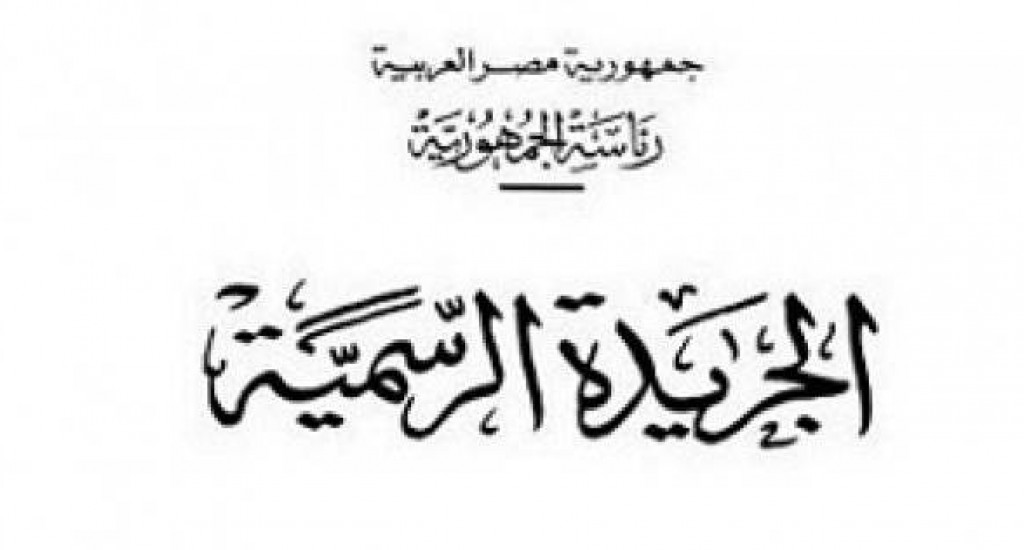 جمهورية مصر العربية
رئاسة الجمهورية
الجريدة الرسمية